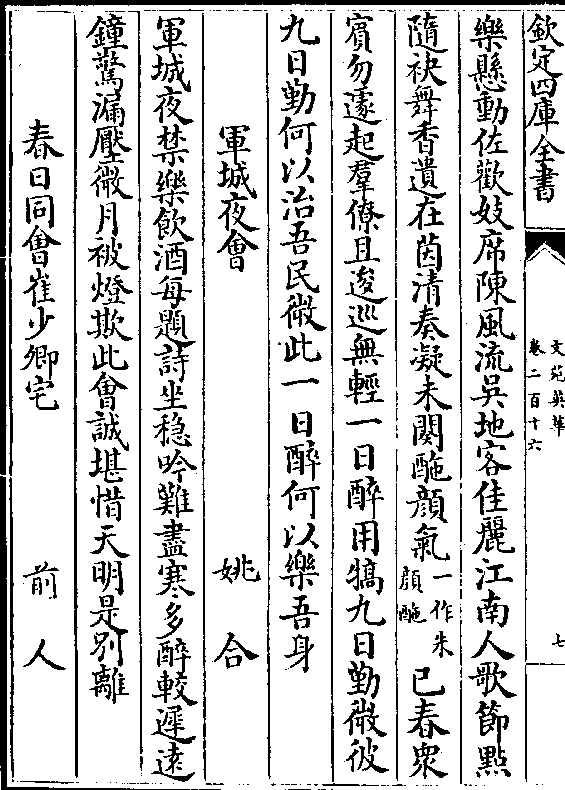 欽定四庫全書
文苑英華
卷二百十六
七
樂懸動佐歡妓席陳風流吳地客佳麗江南人歌節點
隨袂舞香遺在茵清奏凝未闋酡顔氣一作朱顔酡已春衆
賓勿遽起羣僚且逡巡無輕一日醉用犒九日勤微彼
九日勤何以治吾民微此一日醉何以樂吾身
軍城夜會 姚合
軍城夜禁樂飲酒每題詩坐稳吟難盡寒多醉較遲逺
鐘驚漏壓微月被燈欺此會誠堪惜天明是别離
春日同會崔少卿宅 前人